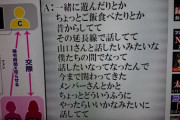 C
交際
A：一緒に遊んだりとか
ちょっとご飯食べたりとか
昔からしてて
その延長線で話してて
山口さんと話したいみたいな
僕たちの間でなって
話したいなってなったんで
今まで関わってきた
メンバーさんとかと
ちょっとどういうふうに
やったらいいかなみたいに
話してて